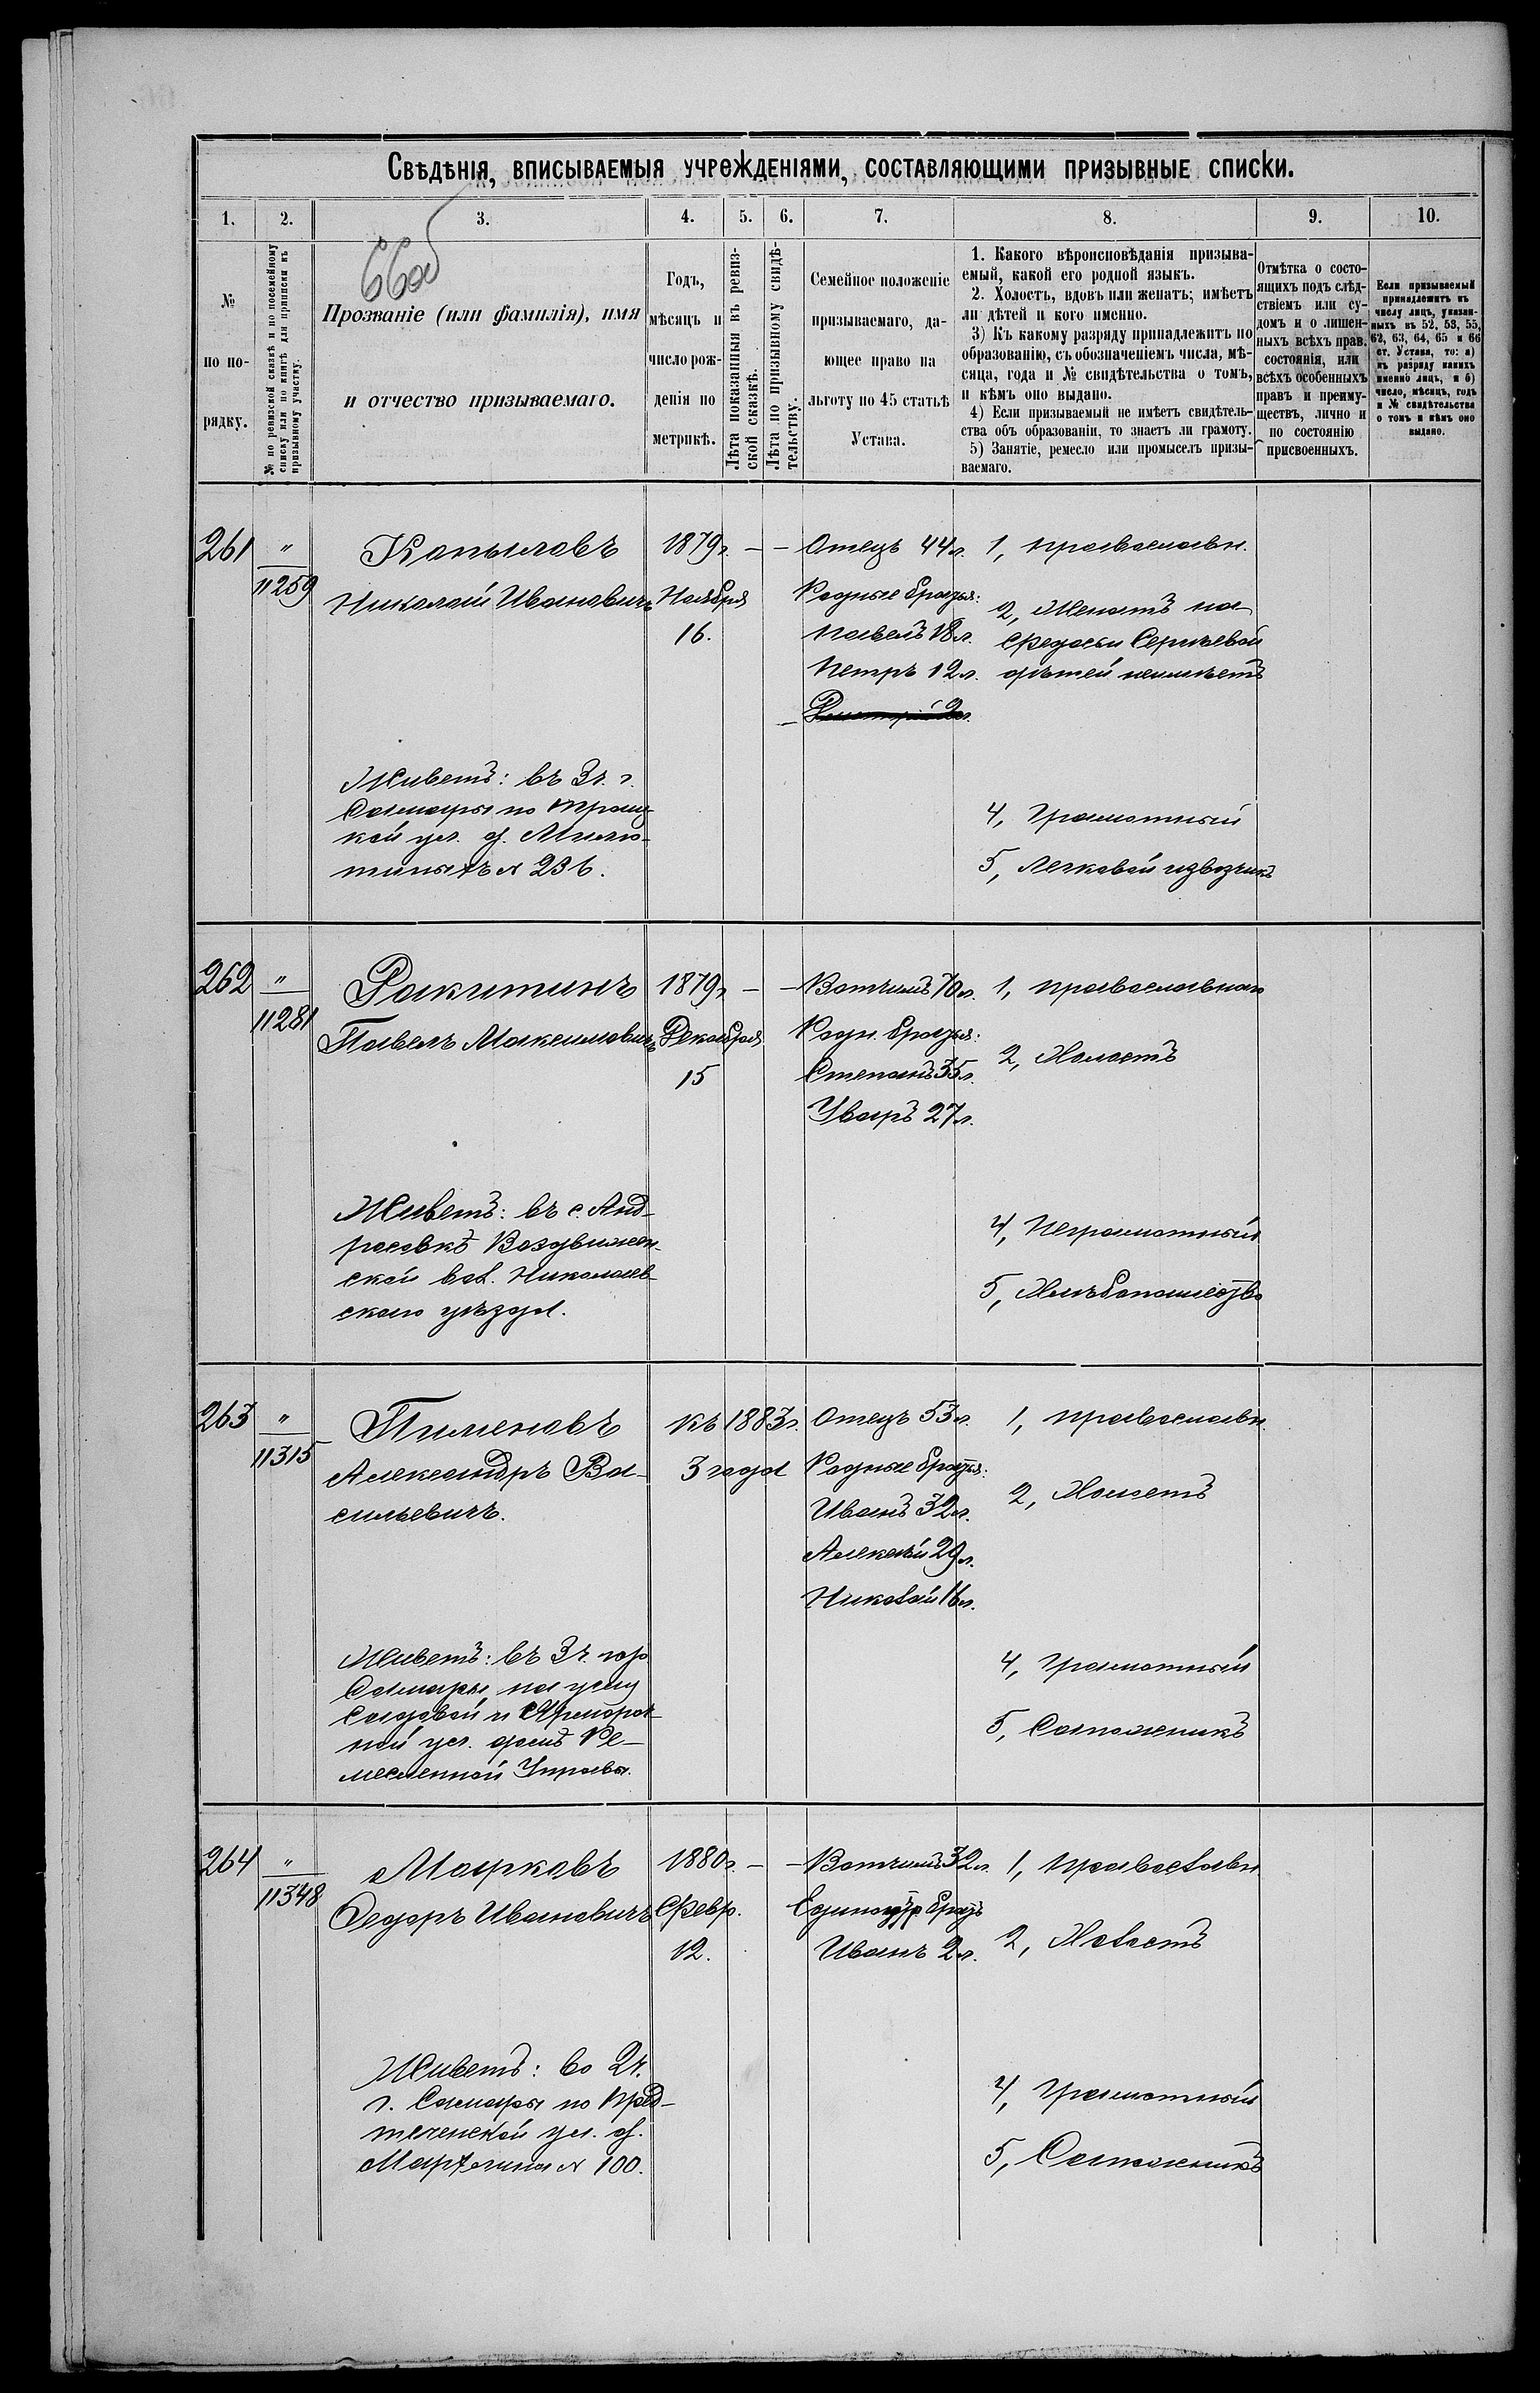 Свѣдѣнія, вписываемыя учрежденіями, составляющими призывные списки.
1. 2. 3. 4. 5. 6. 7. 8. 9. 10.
66об
№
по по-
рядку.
№ по ревизской сказкѣ и по посемейному
списку или по книгѣ для приписки къ
призывному участку.
Прозваніе (или фамилія), имя
и отчество призываемаго.
Годъ,
мѣсяцъ и
число рож-
денія по
метрикѣ.
Лѣта показанныя въ ревиз-
ской сказкѣ.
Лѣта по призывному свидѣ-
тельству.
Семейное положеніе
призываемаго, да-
ющее право на
льготу по 45 статьѣ
Устава.
1. Какого вѣроисповѣданія призыва-
емый, какой его родной языкъ.
2. Холостъ, вдовъ или женатъ; имѣетъ
ли дѣтей и кого именно.
3) Къ какому разряду принадлежитъ по
образованію, съ обозначеніемъ числа, мѣ-
сяца, года и № свидѣтельства о томъ,
и кѣмъ оно выдано.
4) Если призываемый не имѣетъ свидѣтель-
ства объ образованіи, то знаетъ ли грамоту.
5) Занятіе, ремесло или промыселъ призы-
ваемаго.
Отмѣтка о состо-
ящихъ подъ слѣд-
ствіемъ или су-
домъ и о лишен-
ныхъ всѣхъ прав.
состоянія, или
всѣхъ особенныхъ
правъ и преиму-
ществъ, лично и
по состоянію
присвоенныхъ.
Если призываемый
принадлежитъ къ
числу лицъ, указан-
ныхъ въ 52, 53, 55,
62, 63, 64, 65 и 66
ст. Устава, то: а)
къ разряду какихъ
именно лицъ, и б)
число, мѣсяцъ, годъ
и № свидѣтельства
о томъ и кѣмъ оно
выдано.
261 " Копыловъ 1879г. — — Отецъ 44л. 1, Православн.
11259 Николай Ивановичъ Ноября Родные братья: 2, Женатъ на
16. Павелъ 18л. Федосьи Сергѣевой
Петръ 12л. дѣтей неимѣетъ
Дмитрій 2л.
Живетъ: въ 3ч. г.
Самары по Троиц-
кой ул. д. Милю-
тиныхъ № 236.
4, Грамотный
5, Легковой извозчикъ
262 " Ракитинъ 1879г. — — Вотчимъ 70л. 1, Православнаго
11281 Павелъ Максимовичъ Декабря Родн. братья: 2, Холостъ
15 Степанъ 35л.
Уваръ 27л.
Живетъ: въ с. Анд-
росовкѣ Воздвижен-
ской вол. Николаев-
скаго уѣзда.
4, Неграмотный
5, Хлѣбопашество
263 " Пименовъ къ 1883г. Отецъ 53л. 1, Православн.
11315 Александръ Ва- 3 года Родные братья: 2, Холостъ
сильевичъ. Иванъ 32л.
Алексѣй 29л.
Николай 16л.
Живетъ: въ 3ч. гор.
Самары, на углу
Садовой и Ярмороч-
ной ул. домъ Ре-
месленной Управы.
4, Грамотный
5, Сапожникъ
264 " Марковъ 1880г. — — Вотчимъ 32л. 1, Православн
11348 Федоръ Ивановичъ Февр. братъ 2, Холостъ
12. Иванъ 2л.
Живетъ: во 2ч.
г. Самары по Пред-
теченской ул. д.
№ 100.
4, Грамотный
5, Сапожникъ